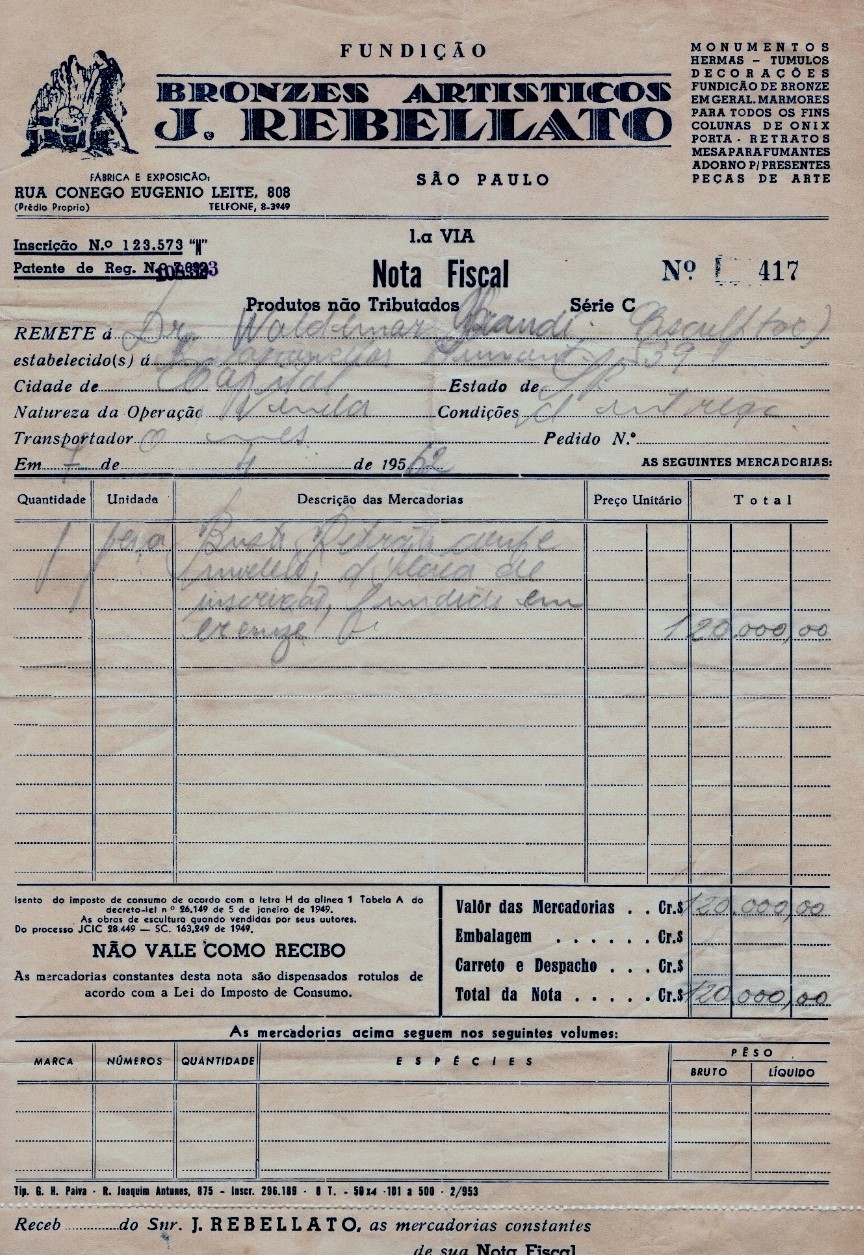 FUNDIÇÃO
BRONZES ARTISTICOS
J. REBELLATO
MONUMENTOS
HERMAS – TUMULOS
DECORAÇÕES
FUNDIÇÃO DE BRONZE
EM GERAL. MARMORES
PARA TODOS OS FINS
COLUNAS DE ONIX
PORTA - RETRATOS
MESA PARA FUMANTES
ADORNO P/ PRESENTES
PEÇAS DE ARTE
FÁBRICA E EXPOSICÃO:
RUA CONEGO EUGENIO LEITE, 808
(Prédio Proprio) TELFONE, 8-3949
SÃO PAULO
1.a VIA
Inscrição N.o 123.573 "N"
Patente de Reg. N.o
Nota Fiscal
Nº 417
Produtos não Tributados Série C
REMETE á Dr. Waldemar (Escultor)
estabelecido(s) á 539
Cidade de Capital Estado de
Natureza da Operação Venda Condições d entrega
Transportador O mes Pedido N.º
Em 7 de 4 de 1962
AS SEGUINTES MERCADORIAS:
Quantidade Unidade Descrição das Mercadorias Preço Unitário Total
1 peça Busto Retrato conf.e
modelo, de
inscrição, fundido em
bronze 120.000,00
Isento do imposto de consumo de acordo com a letra H da alinea 1 Tabela A do
decreto-lei nº 26.149 de 5 de janeiro de 1949.
As obras de escultura quando vendidas por seus autores.
Do processo JCIC 28.449 — SC. 163,249 de 1949.
NÃO VALE COMO RECIBO
As mercadorias constantes desta nota são dispensados rotulos de
acordo com a Lei do Imposto de Consumo.
Valôr das Mercadorias . . Cr.$ 120.000,00
Embalagem . . . . . . Cr.$
Carreto e Despacho . . . Cr.$
Total da Nota . . . . . Cr.$ 120.000,00
As mercadorias acima seguem nos seguintes volumes:
MARCA NÚMEROS QUANTIDADE ESPÉCIES PÊSO
BRUTO LÍQUIDO
Tip. G. H. Paiva - R. Joaquim Antunes, 875 - Inscr. 296.189 - 8 T. - 50x4 -101 a 500 - 2/953
Receb ............do Snr. J. REBELLATO, as mercadorias constantes
de sua Nota Fiscal